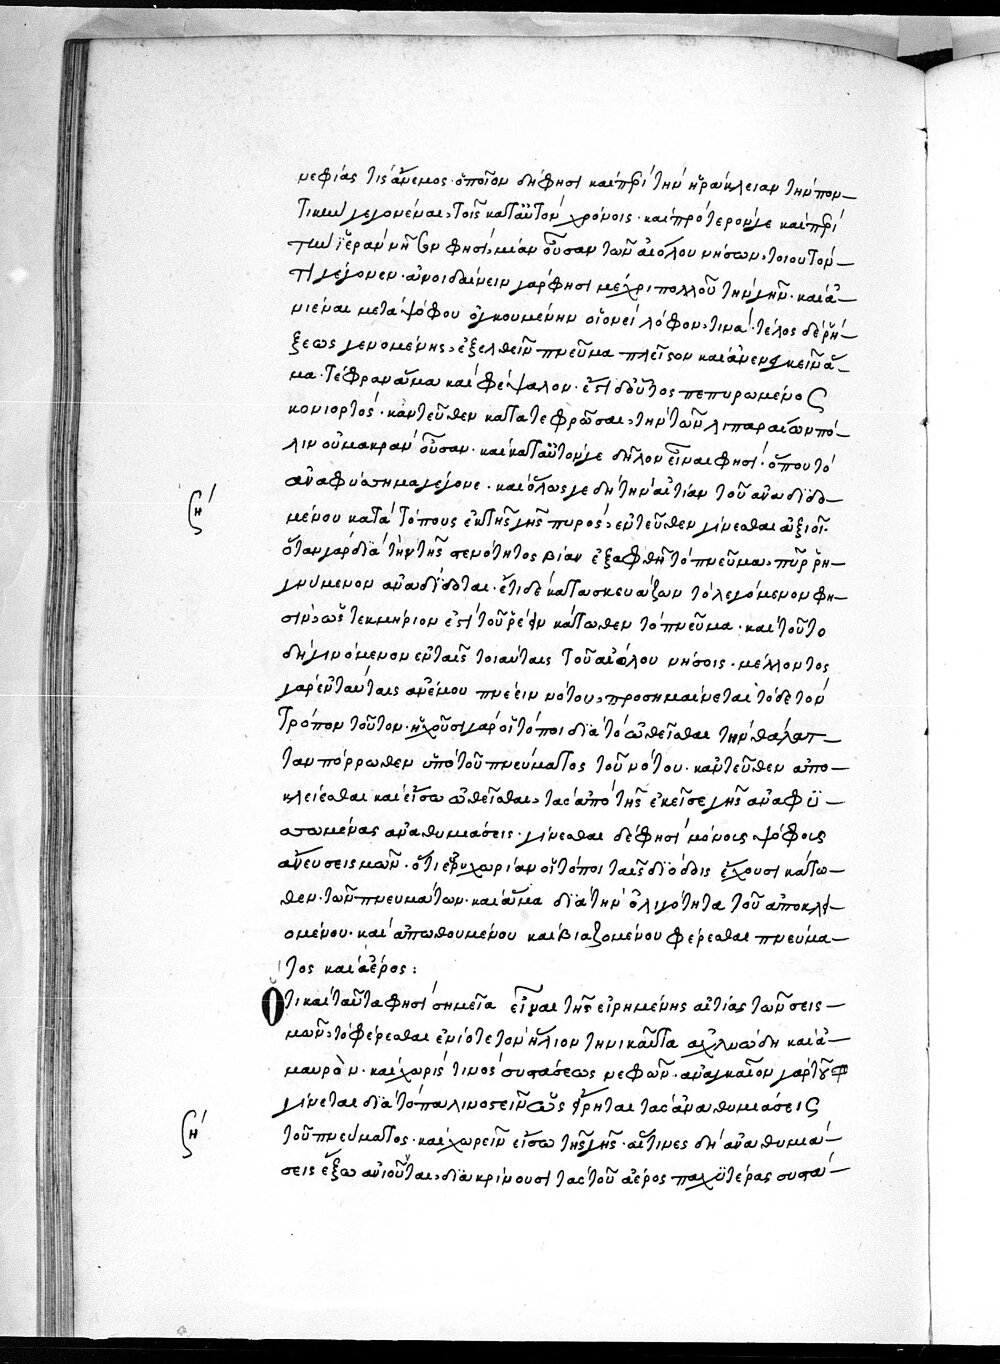 νεφίας τις ἄνεμος· ὁποῖον δή φησι καὶ περὶ τὴν ἡράκλειαν τὴν πον-
τικὴν γεγονέναι, τοῖς κατ' αὐτὸν χρόνοις· καὶ πρότερόν γε καὶ περὶ
τὴν ἱερὰν νῆσον φησὶ, μίαν οὖσαν τῶν αἰόλου νήσων, τοιοῦτόν
τι γέγονεν· ἀνοιδαίνειν γάρ φησι μέχρι πολλοῦ τὴν γῆν· καὶ ἀ-
νιέναι μετὰ ψόφου ὀγκουμένην οἱονεὶ λόφον τινά· τέλος δὲ ῥή-
ξεως γενομένης, ἐξελθεῖν πνεῦμα πλεῖστον καὶ ἀνενεγκεῖν ἅ-
μα· τέφραν ἅμα καὶ φέψαλον· ἔστι δ' οὗτος πεπυρωμένος
κονιορτός· κἀντεῦθεν κατατεφρῶσαι, τὴν τῶν λιπαραίων πό-
λιν οὐ μακρὰν οὖσαν· καὶ κατ' αὐτόν γε δῆλον εἶναι φησὶ· ὅπου τὸ
ἀναφύσημα γέγονε· καὶ ὅλως γε δὴ τὴν αἰτίαν τοῦ ἀναδιδο-
ζη
μένου κατὰ τόπους ἐκ τῆς γῆς πυρὸς, ἐντεῦθεν γίνεσθαι ἀξιοῖ·
ὅταν γὰρ διὰ τὴν τῆς στενότητος βίαν ἐξαφθῇ τὸ πνεῦμα, πῦρ ῥη-
γνύμενον ἀναδίδοται· ἔτι δὲ κατασκευάζων τὸ λεγόμενον φη-
σιν, ὡς τεκμήριον ἐστὶ τοῦ ῥεῖν κάτωθεν τὸ πνεῦμα· καὶ τοῦτο
δὴ γινόμενον ἐν ταῖς τοιαύταις τοῦ αἰόλου νήσοις· μέλλοντος
γὰρ ἐνταύταις ἀνέμου πνέειν νότου, προσημαίνεται τόδε τὸν
τρόπον τοῦτον· ἠχοῦσι γὰρ οἱ τόποι διὰ τὸ ὠθεῖσθαι τὴν θάλατ-
ταν πόρρωθεν ὑπὸ τοῦ πνεύματος τοῦ νότου· κἀντεῦθεν ἀπο-
κλείεσθαι καὶ εἴσω ὠθεῖσθαι, τὰς ἀπὸ τῆς ἐκεῖσε γῆς ἀναφυ-
σωμένας ἀναθυμιάσεις· γίνεσθαι δέ φησὶ μόνοις ψόφοις
ἄνευ σεισμῶν· ὅτι εὐρυχωρίαν οἱ τόποι ταῖς διόδοις ἔχουσι κάτω-
θεν τῶν πνευμάτων· καὶ ἅμα διὰ τὴν ὀλιγότητα τοῦ ἀποκλει-
ομένου· καὶ ἀπωθουμένου καὶ βιαζομένου φέρεσθαι πνεύμα-
τος καὶ ἀέρος:
Ὅτι καὶ ταῦτα φησὶ σημεῖα εἶναι τῆς εἰρημένης αἰτίας τῶν σεις-
μῶν, τὸ φέρεσθαι ἐνίοτε τὸν ἥλιον τηνικαῦτα ἀχλυώδη καὶ ἀ-
μαυρὸν· καὶ χωρίς τινος συστάσεως νεφῶν· ἀναγκαῖον γὰρ τοῦτο
ζη
γίνεται διὰ τὸ παλινοστεῖν ὡς εἴρηται τὰς ἀναθυμιάσεις
τοῦ πνεύματος· καὶ χωρεῖν εἴσω τῆς γῆς· αἵτινες δὴ ἀναθυμιά-
σεις ἔξω ἀνιοῦσαι, διακρίνουσι τὰς τοῦ ἀέρος παχυτέρας συστά-